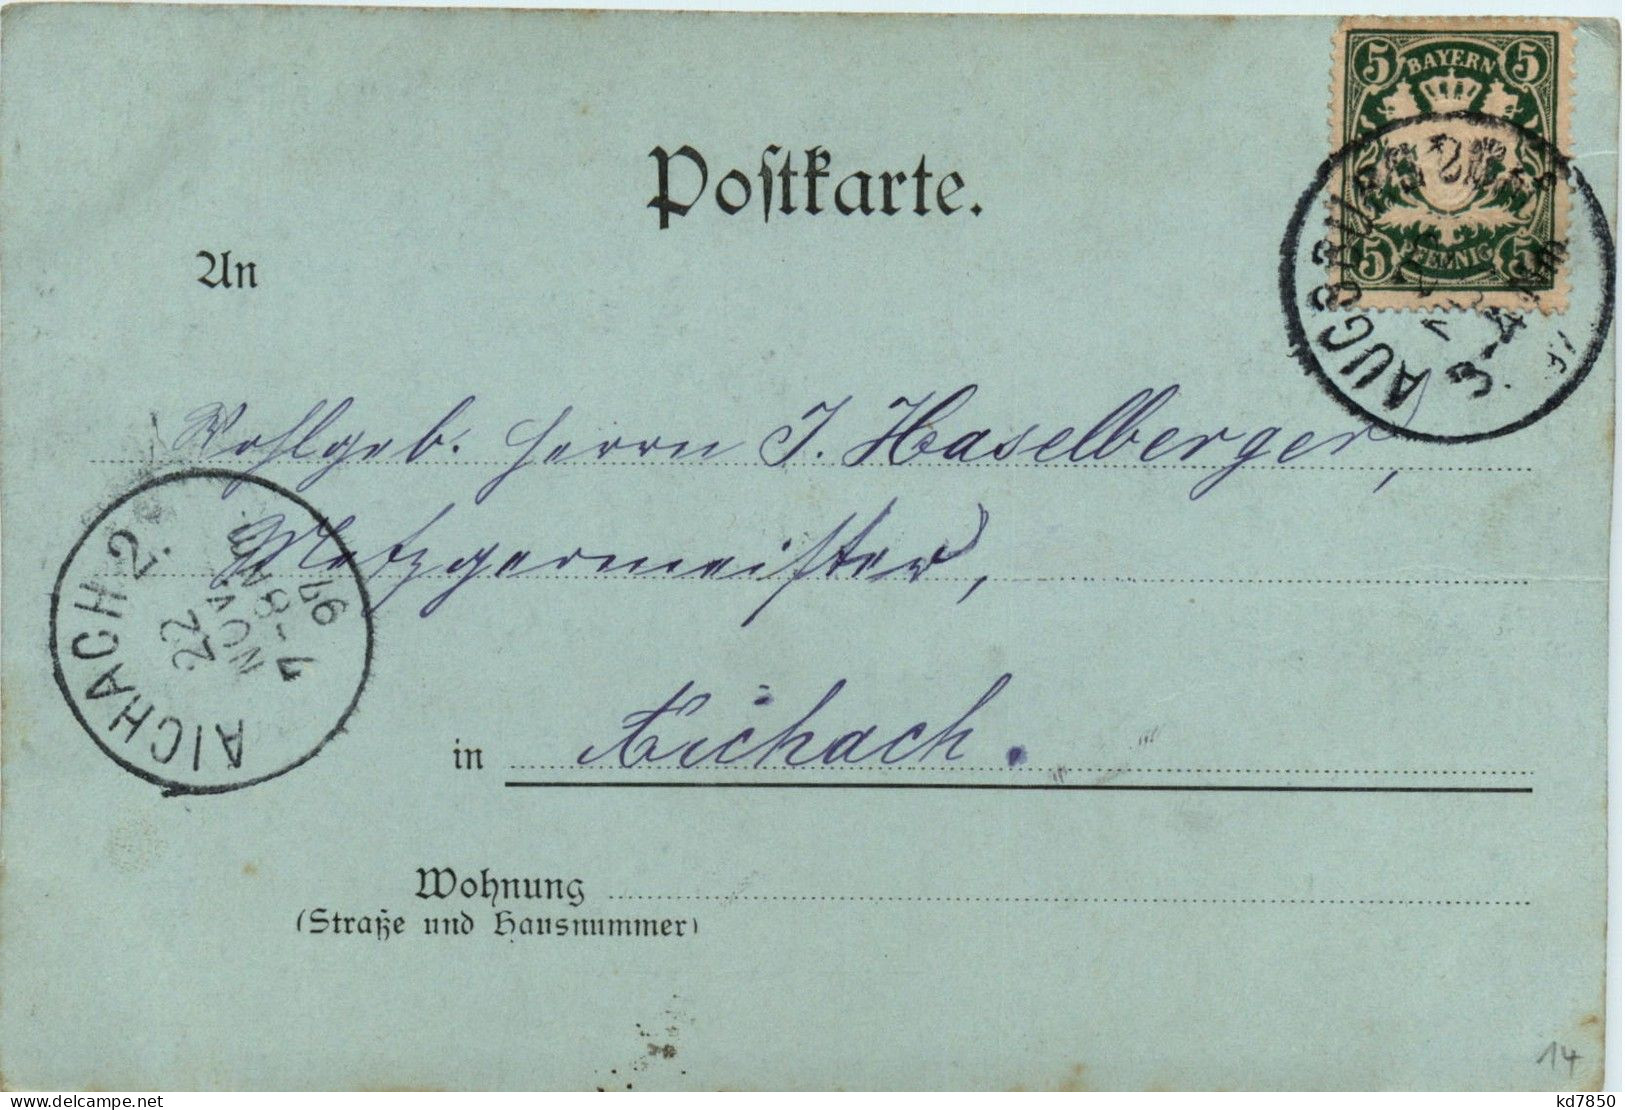 BAYERN
5 5
5 PFENNIG 5
Postkarte.
An
AUGSBURG
3-4
Wohlgeb. Herrn J. Haselberger,
Metzgermeister,
AICHACH 2.
22
NOV.
7-8
97
in Aichach.
Wohnung
(Straße und Hausnummer)
14
www.delcampe.net
kd7850